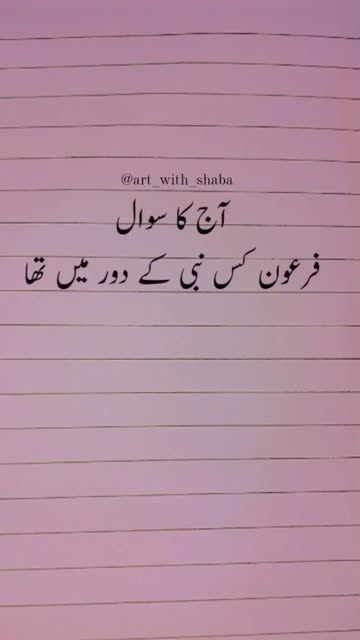 @art_with_shaba
آج کا سوال
فرعون کس نبی کے دور میں تھا